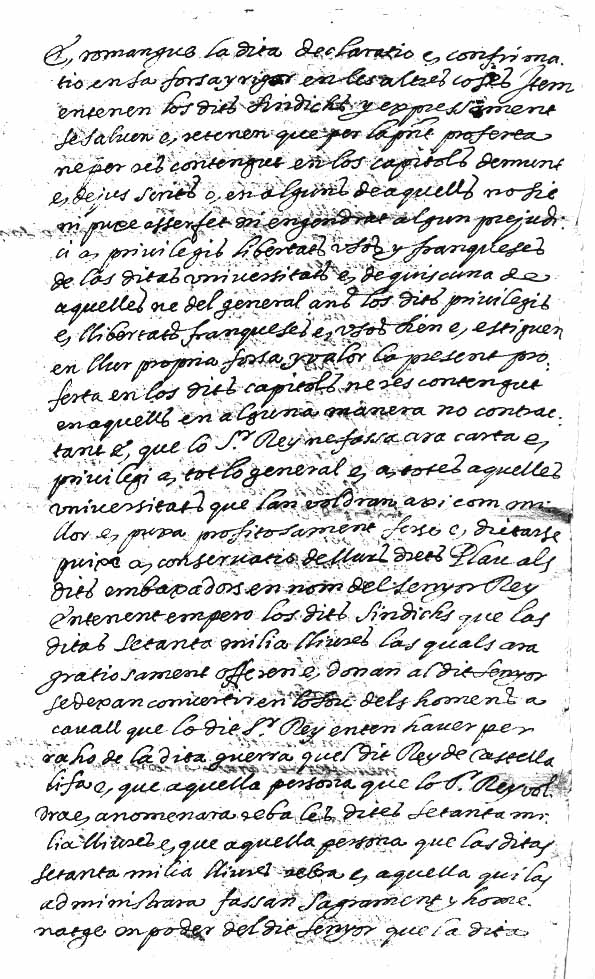 E, romangue la dita declaratio e, confirma.
tio en sa forsa y rigor en les altres coses Item
entenen los dits Sindichs y expressament
se salven e, retenen que per la prnt proferta
ne per res contengut en los capitols demunt
e, dejus scrits o, en alguns de aquells no sie
ni puxe esser fet ni engendrat algun prejudi.
ci a, privilegis libertats usos y franqueses
de las ditas universitats e, de quiscuna de
aquelles ne del general ans los dits privilegis
e, llibertats franqueses e, usos sien e, estiguen
en llur propria forsa y valor la present pro.
ferta en los dits capitols ne res contengut
en aquells en alguna manera no contrac.
tant E, que lo Sr. Rey ne fassa ara carta e,
privilegi a, tot lo general e, a, totes aquelles
universitats que lan voldran axi com mi.
llor e, puxa profitosament ferse e, dictarse
puixe a, conservatio de llurs drets Plau als
dits embaxadors en nom del Senyor Rey
Entenent empero los dits Sindichs que las
ditas setanta milia lliures las quals ara
gratiosament offeren e, donan al dit Senyor
se dexan convertir en lo sou dels homens a
cavall que lo dit Sr. Rey enten haver per
raho de la dita guerra quel dit Rey de Castella
li fa e, que aquella persona que lo Sr. Rey vol.
dra e, anomenara reba les dites setanta mi.
lia lliures e, que aquella persona que las ditas
setanta milia lliures reba e, aquella qui las
administrara fassan Sagrament y home.
natge en poder del dit Senyor que la dita